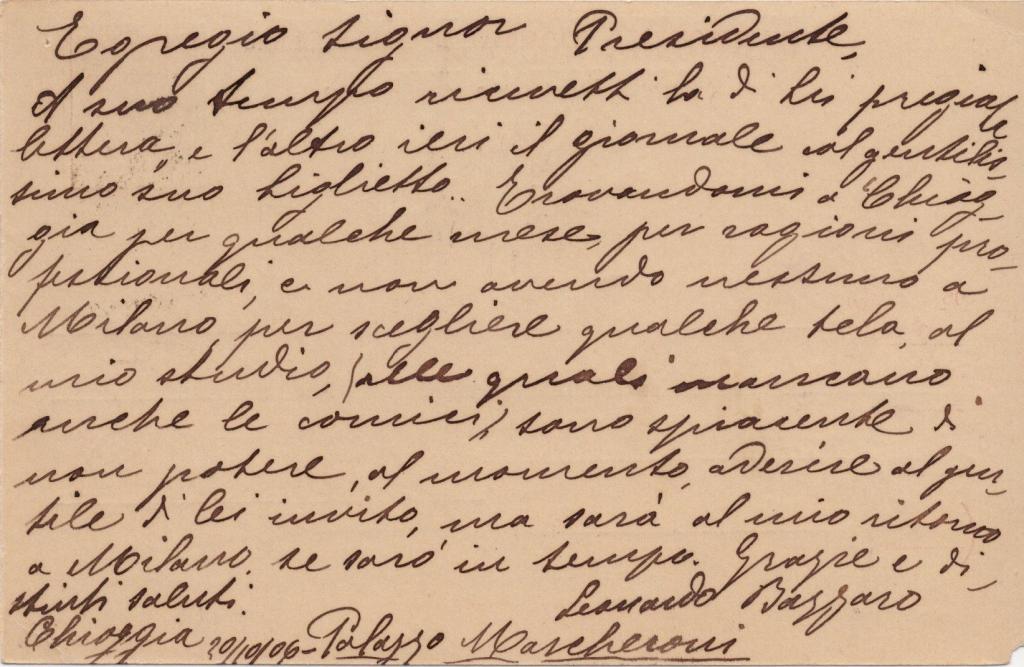 Egregio Signor Presidente,
A suo tempo ricevetti la di lei pregiat
lettera, e l'altro ieri il giornale col gentilis-
simo suo biglietto. Trovandomi a Chiog-
gia per qualche mese, per ragioni pro-
fessionali, e non avendo nessuno a
Milano, per scegliere qualche tela, al
mio studio, (alle quali mancano
anche le cornici) sono spiacente di
non potere, al momento, aderire al gen-
tile di lei invito, ma sarà al mio ritorno
a Milano, se sarò in tempo. Grazie e di-
stinti saluti.
Leonardo Bazzaro
Chioggia 20/10/06 - Palazzo Mascheroni